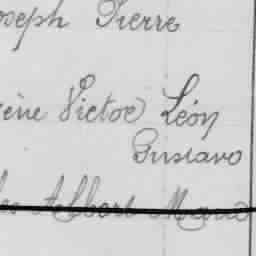 oseph Pierre
ène Victor Léon
Gustave
les Albert Marie